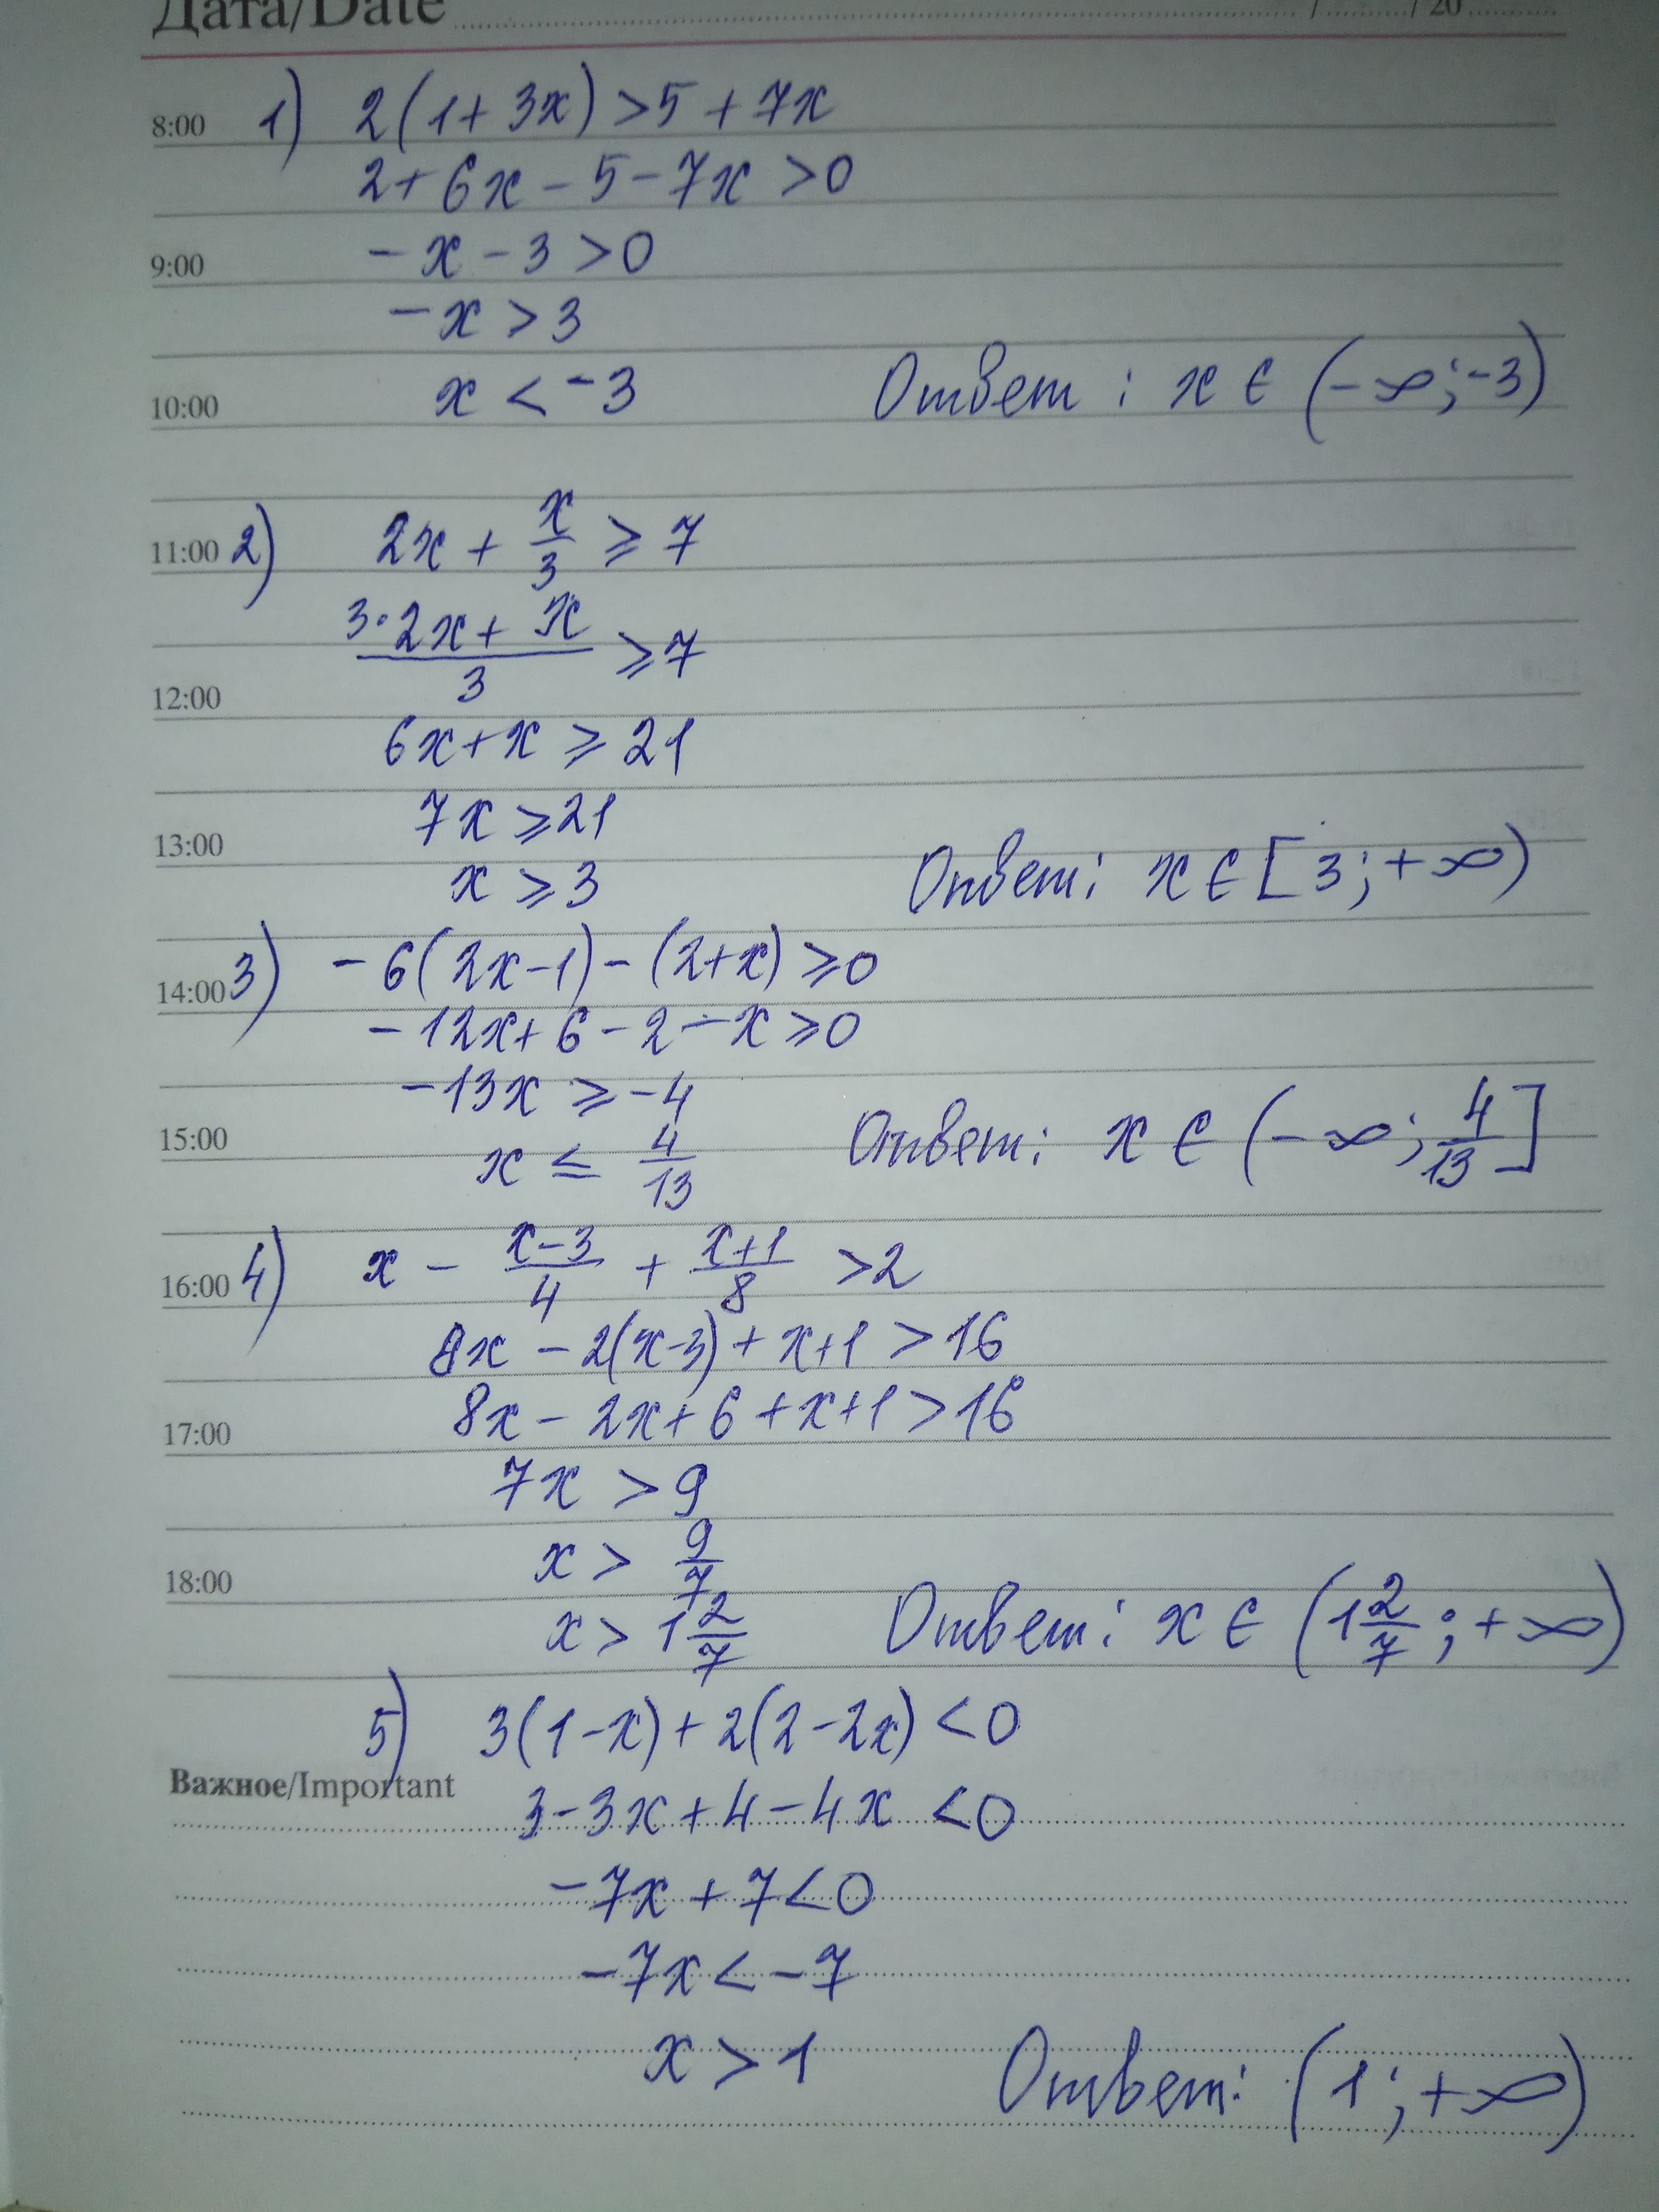 Дата/Date / / 20
8:00 1) 2(1+3x)>5+7x
2+6x-5-7x>0
9:00 -x-3>0
-x>3
10:00 x<-3 Ответ: x∈(-∞;-3)
11:00 2) 2x+x/3≥7
(3·2x+x)/3≥7
12:00
6x+x≥21
7x≥21
13:00
x≥3 Ответ: x∈[3;+∞)
14:00 3) -6(2x-1)-(2+x)≥0
-12x+6-2-x≥0
-13x≥-4
15:00 x≤4/13 Ответ: x∈(-∞;4/13]
16:00 4) x-(x-3)/4+(x+1)/8>2
8x-2(x-3)+x+1>16
17:00 8x-2x+6+x+1>16
7x>9
18:00 x>9/7
x>1 2/7 Ответ: x∈(1 2/7;+∞)
5) 3(1-x)+2(2-2x)<0
Важное/Important
3-3x+4-4x<0
-7x+7<0
-7x<-7
x>1 Ответ: (1;+∞)